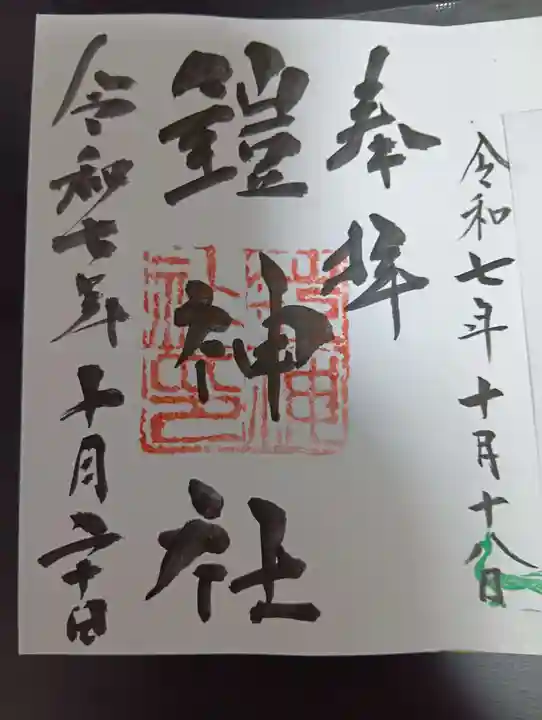 令和七年十月十八日
奉拝
鎧神社
令和七年十月二十日